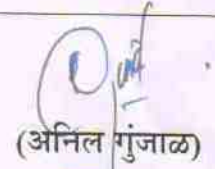 (अनिल गुंजाळ)